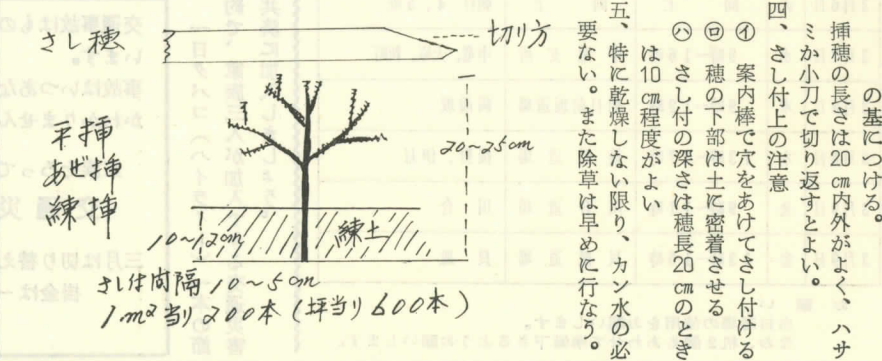 の基につける。
挿穂の長さは20cm内外がよく、ハサ
ミか小刀で切り返すとよい。
四、さし付上の注意
㋑ 案内棒で穴をあけてさし付ける
㋺ 穂の下部は土に密着させる
㋩ さし付の深さは穂長20cmのとき
は10cm程度がよい
五、特に乾燥しない限り、カン水の必
要ない。また除草は早めに行なう。
さし穂
切り方
平挿
あぜ挿
練挿
20~25cm
10~12cm
練土
さし付間隔 10~5cm
1m²当り200本(坪当り600本)